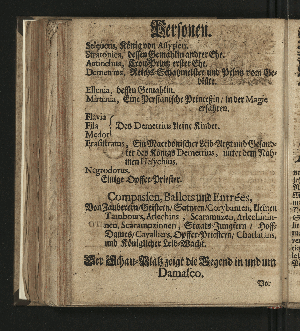 Personen.
Seleucus, König von Assyrien.
Stratonica, dessen Gemahlin andrer Ehe.
Antiochus, Cron-Printz erster Ehe.
Demetrius, Reichs-Schatzmeister und Printz vom Ge-
blüte.
Ellenia, dessen Gemahlin.
Mirtenia, Eine Persianische Princeßin, in der Magie
erfahren.
Flavia
Fila Des Demetrius kleine Kinder.
Medor
Erasistratus, Ein Macedonischer Leib-Artzt und Gesand-
ter des Königs Demetrius, unter dem Nah-
men Hesychius.
Negrodorus.
Einige Opffer-Priester.
Comparsen, Ballets und Entrées,
Von Zauberern, Geistern, Satyren, Corybanten, kleinen
Tambours, Arlechins, Scaramuzen, Arlechinin-
nen, Scaramuzinnen, Staats-Jungfern, Hoff-
Dames, Cavalliers, Opffer-Priestern, Charlatans,
und Königlicher Leib-Wacht.
Der Schau-Platz zeigt die Gegend in und um
Damasco.
Vor